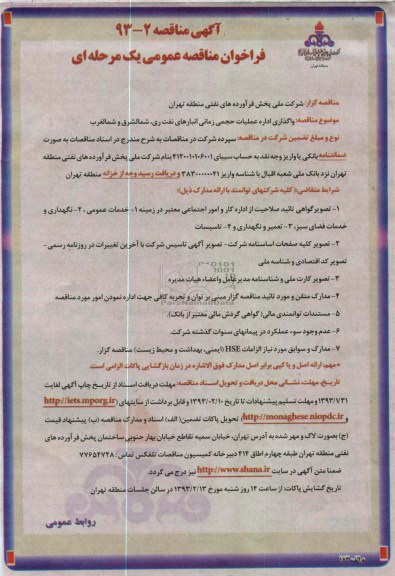 آگهی مناقصه ۲-۹۳
فراخوان مناقصه عمومی یک مرحله ای
منطقه تهران
مناقصه گزار: شرکت ملی پخش فرآورده های نفتی منطقه تهران
موضوع مناقصه: واگذاری اداره عملیات حجمی زمانی انبارهای نفت ری، شمالشرق و شمالغرب
نوع و مبلغ تضمین شرکت در مناقصه: سپرده شرکت در مناقصات به شرح مندرج در اسناد مناقصات به صورت
ضمانتنامه بانکی یا واریز وجه نقد به حساب سیبای ۴۱۲۰۰۱۰۱۰۶۰۰۱ بنام شرکت ملی پخش فرآورده های نفتی منطقه
تهران نزد بانک ملی شعبه اقبال با شناسه واریز ۳۸۳۰۰۰۰۰۰۲۱ و دریافت رسید وجه از خزانه منطقه تهران
شرایط متقاضی: (کلیه شرکتهای توانمند با ارائه مدارک ذیل):
۱- تصویر گواهی تائید صلاحیت از اداره کار و امور اجتماعی معتبر در زمینه ۱- خدمات عمومی، ۲- نگهداری و
خدمات فضای سبز، ۳- تعمیر و نگهداری و ۴- تاسیسات
۲- تصویر کلیه صفحات اساسنامه شرکت - تصویر آگهی تاسیس شرکت با آخرین تغییرات در روزنامه رسمی -
تصویر کد اقتصادی و شناسه ملی
۳- تصویر کارت ملی و شناسنامه مدیرعامل واعضاء هیات مدیره
۴- مدارک متقن و مورد تائید مناقصه گزار مبنی بر توان و تجربه کافی جهت اداره نمودن امور مورد مناقصه
۵- مستندات توانمندی مالی( گواهی گردش مالی معتبر از بانک).
۶- عدم وجود سوء عملکرد در پیمانهای سنوات گذشته شرکت.
۷- مدارک و سوابق مورد نیاز الزامات HSE (ایمنی، بهداشت و محیط زیست) مناقصه گزار.
* مهمور ارائه اصل و یا کپی برابر اصل مدارک فوق الاشاره در زمان بازگشایی پاکات الزامی است.
تاریخ، مهلت، نشانی محل دریافت و تحویل اسناد مناقصه: مهلت دریافت اسناد از تاریخ چاپ آگهی لغایت
۱۳۹۳/۱/۳۱ و مهلت تسلیم پیشنهادات تا تاریخ ۱۳۹۳/۰۲/۱۰ و قابل برداشت از سایتهای (http://iets.mporg.ir
و http://monaghese.niopdc.ir)، تحویل پاکات تضمین( الف) اسناد و مدارک مناقصه (ب) پیشنهاد قیمت
(ج) بصورت لاک و مهر شده به آدرس تهران، خیابان سمیه تقاطع خیابان بهار جنوبی ساختمان پخش فرآورده های
نفتی منطقه تهران طبقه چهارم اطاق ۴۱۴ دبیرخانه کمیسیون مناقصات تلفکس تماس: ۷۷۶۵۴۷۲۸
ضمنا متن آگهی در سایت http://www.shana.ir نیز درج می گردد.
تاریخ گشایش پاکات: از ساعت ۱۴ روز شنبه مورخ ۱۳۹۳/۲/۱۳ در سالن جلسات منطقه تهران
روابط عمومی